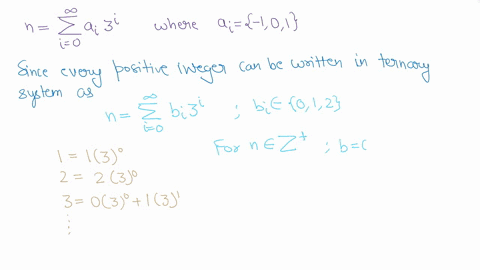 n = ∑_{i=0}^{∞} a_i 3^i where a_i = {-1, 0, 1}
Since every positive integer can be written in ternary
system as
n = ∑_{i=0}^{∞} b_i 3^i ; b_i ∈ {0, 1, 2}
For n ∈ Z^+ ; b = (
1 = 1(3)^0
2 = 2(3)^0
3 = 0(3)^0 + 1(3)^1
⋮